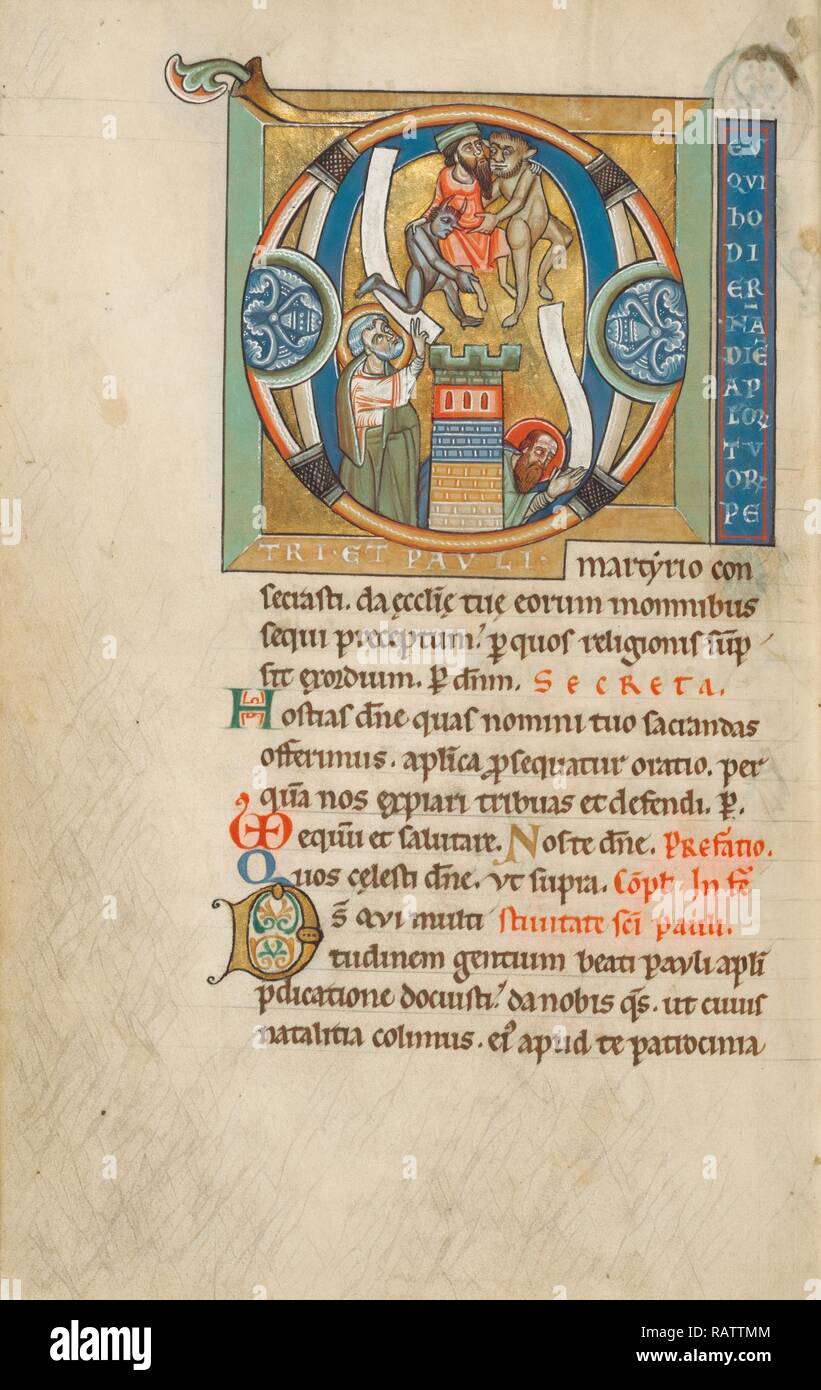 EUS
QVI
hO
DI
ER
NA
DIĒ
AP
LOR
TVO
OR
PE
TRI · ET PAVLI ·
martyrio con
secrasti. da ęccl̄ię tuę eorum in omnibus
sequi pręceptum. ꝑ quos religionis sūp
sit exordium. P̱ dn̄m. SECRETA.
Hostias dn̄e quas nomini tuo sacrandas
offerimus. apl̄ica ꝓsequatur oratio. per
quā nos expiari tribuas et defendi. P̱.
equū et salutare. Noste dn̄e. Prefatio.
Quos cęlesti dn̄e. vt supra. Cōpl̄. In fe
D̄s qui multi stiuitate sc̄i pauli.
tudinem gentium beati pauli apl̄i
p̄dicatione docuisti. da nobis q̄s. ut cuius
natalitia colimus. ei' apud te patrocinia
alamy
Image ID: RATTMM
www.alamy.com